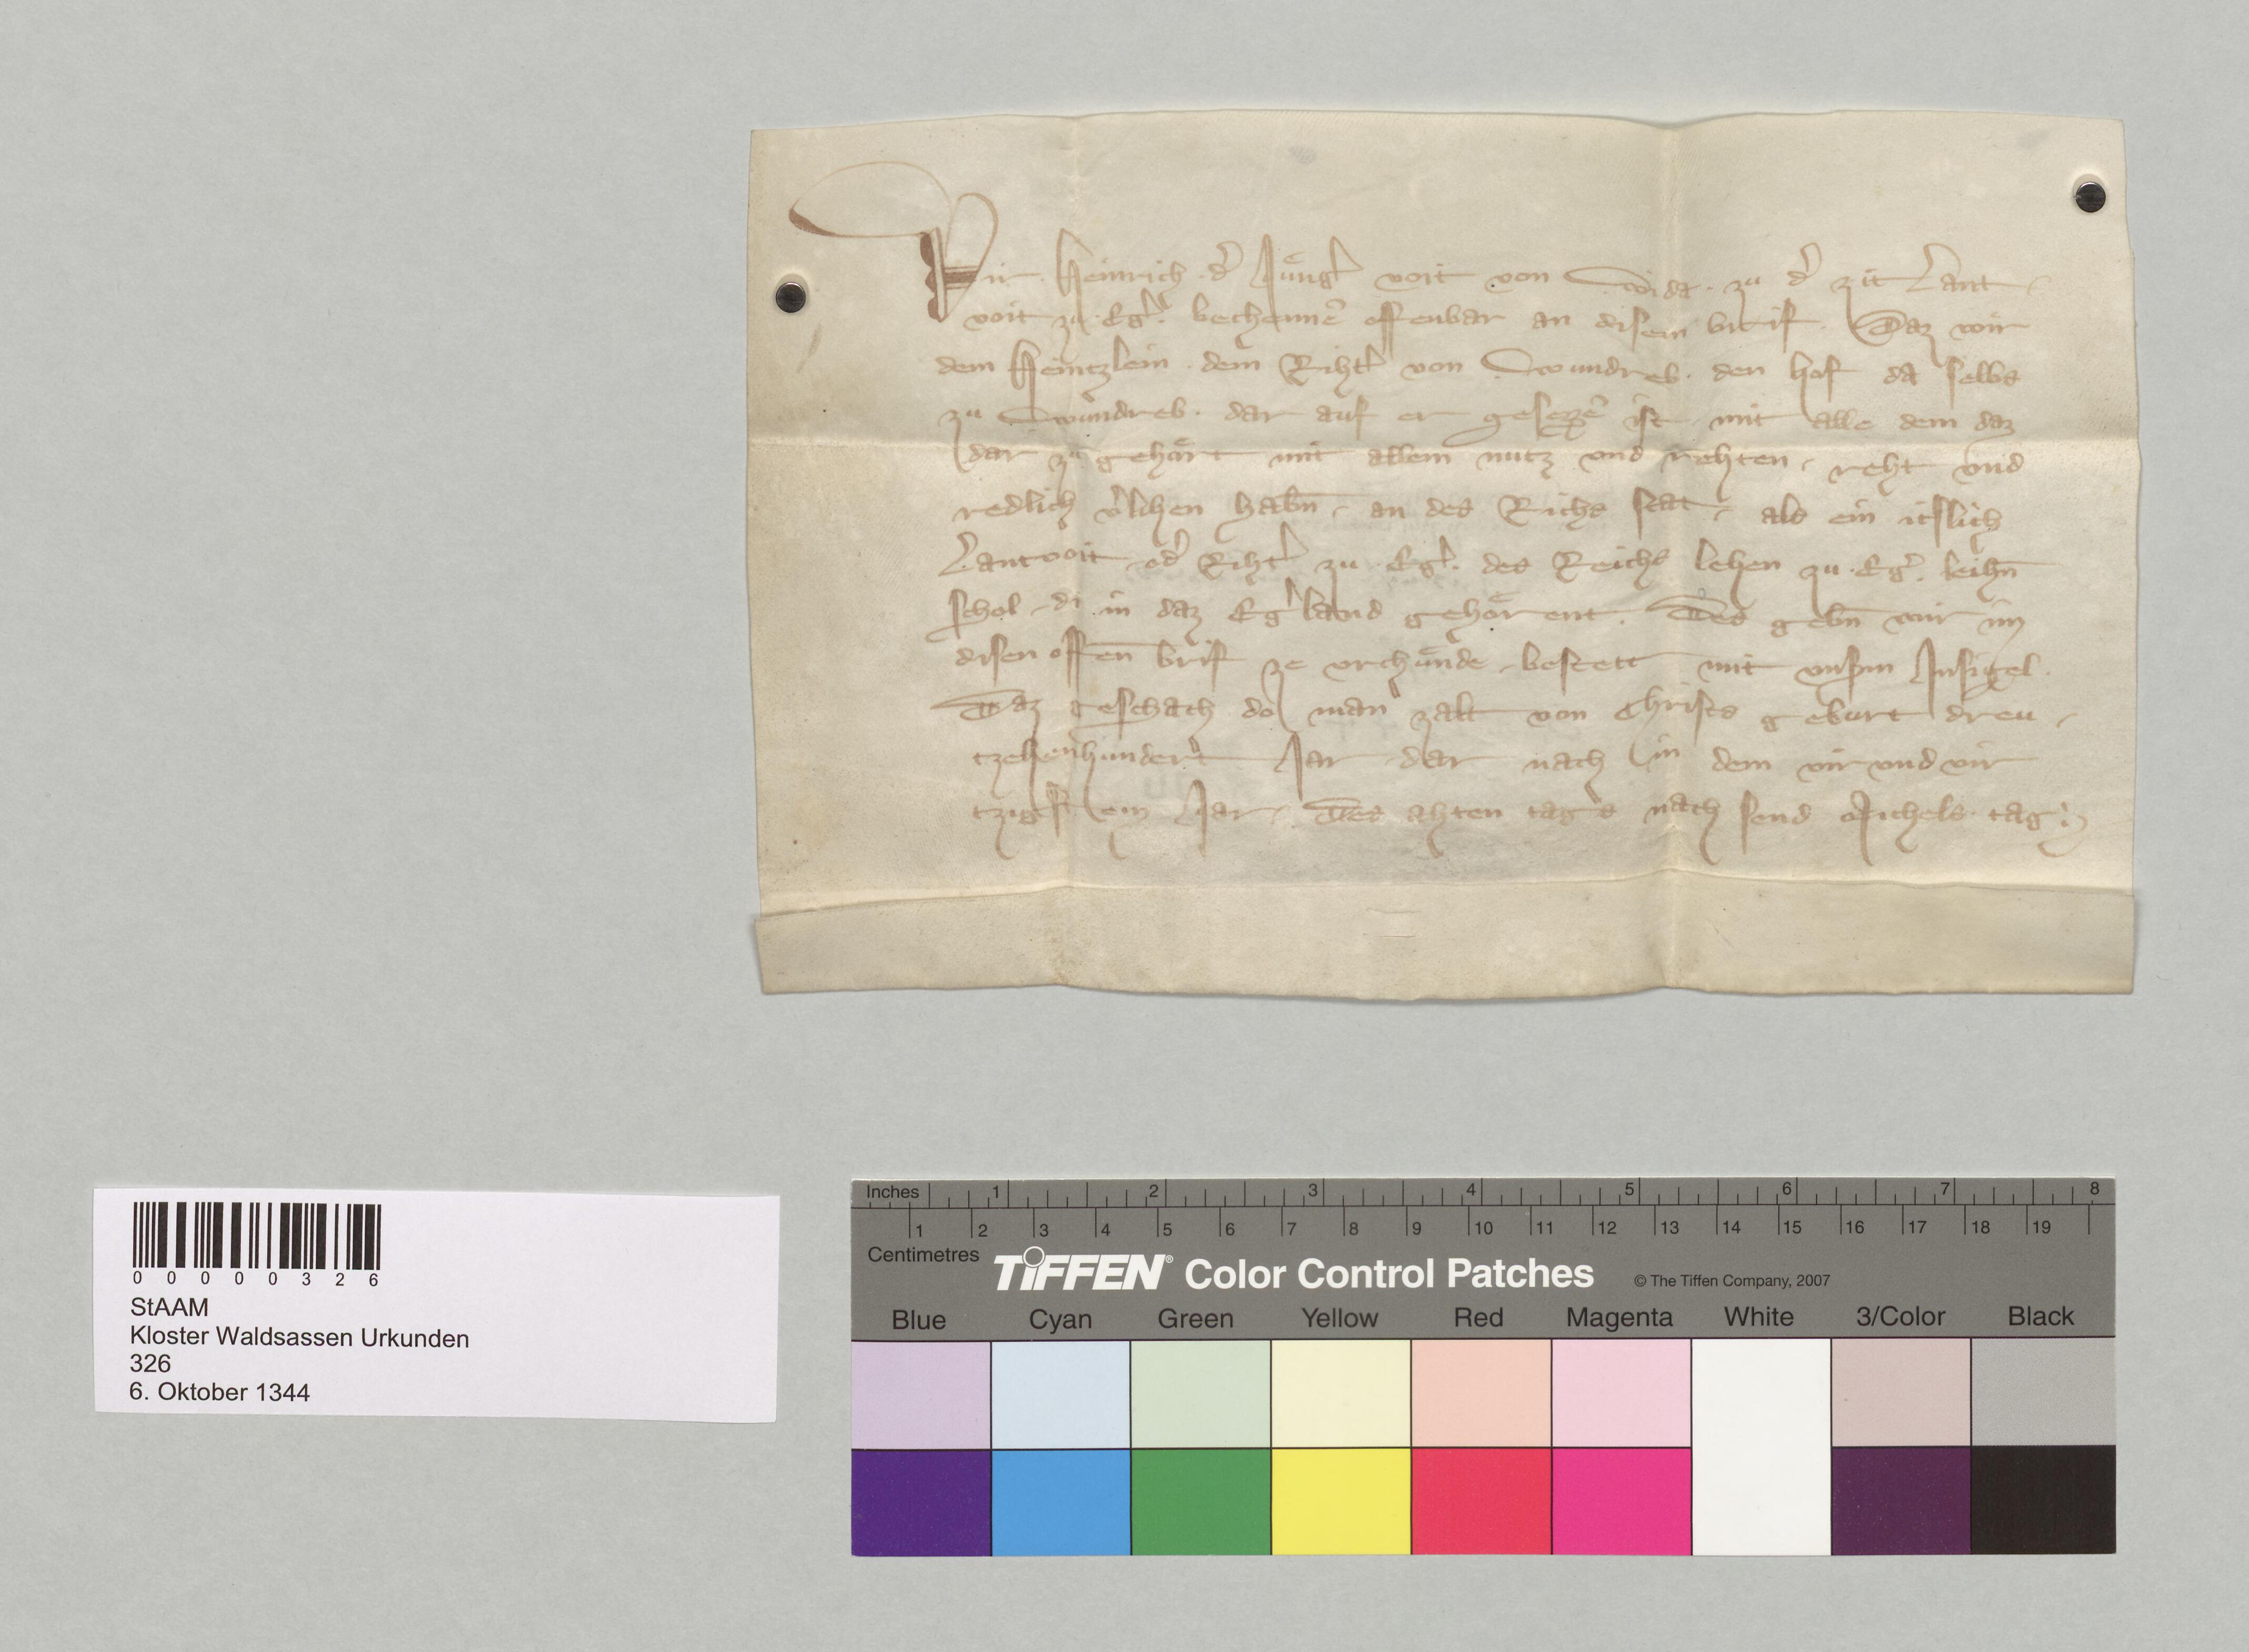 Wir. Heinrich. d̓ Juͤngl̓ voit von Wida. zu d̓ zit Lant-
voit zu. Egl̓. bechennē offenbar an disem brif. Daz wir
dem Heintzlein. dem Rihtl̓ von Wundreb. den hof da selbs
zu Wundreb. dar auf er gesezzē ist mit alle dem daz
dar zu gehoͤrt mit allem nutz vnd rehten, reht vnd
redlich v̓lihen habn̄, an des Richs stat, als ein itslich
Lantvoit od̓ Rihtl̓ zu. Egl̓. des Reichs lehen zu. Eg̓. leihn̄
schol, di in daz Eg̓land gehoͤrent. Des gebn̄ wir im
disen offen̄ brif ze vrchuͤnde, bestett mit vnsm Insigel.
Daz geschach do man zalt von Christs geburt dreu-
tzehenhundert Jar dar nach in dem vir vnd vir
tzigstem Jar, Des ahten tags nach send Michels tag
0 0 0 0 0 3 2 6
StAAM
Kloster Waldsassen Urkunden
326
6. Oktober 1344
Inches 1 2 3 4 5 6 7 8
1 2 3 4 5 6 7 8 9 10 11 12 13 14 15 16 17 18 19
Centimetres
TIFFEN® Color Control Patches © The Tiffen Company, 2007
Blue Cyan Green Yellow Red Magenta White 3/Color Black